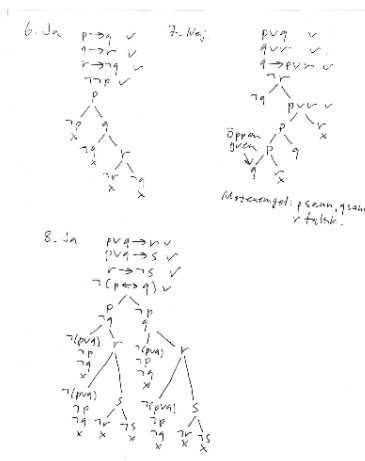 6. Ja
p → q ✓
q → r ✓
r → ¬q ✓
¬¬p ✓
p
¬p q
x
¬q r
x
¬r ¬q
x x
7. Nej.
p∨q ✓
q∨r ✓
q → p∨r ✓
¬r
¬q p∨r ✓
p r
x
Öppen gren
p q
q r
x
Motexempel: p sann, q sann,
r falsk.
8. Ja
p∨q → r ✓
p∨q → s ✓
r → ¬s ✓
¬(p ↔ q) ✓
p ¬p
¬q q
¬(p∨q) r ¬(p∨q) r
¬p ¬p
¬q ¬q
x x
¬(p∨q) s ¬(p∨q) s
¬p ¬p
¬q ¬r ¬s ¬q ¬r ¬s
x x x x x x